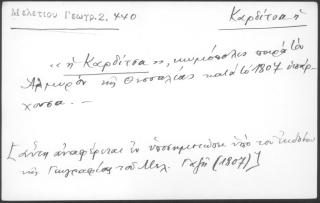 Μελετίου Γεωγρ. 2. 440
Καρδίτσα ἡ
« ἡ Καρδίτσα », κωμόπολις παρὰ τὸν
Ἁλμυρὸν τῆς Θεσσαλίας κατὰ τὸ 1807 ὑπάρ-
χουσα. —
[Αὕτη ἀναφέρεται ἐν ὑποσημειώσει ὑπὸ τοῦ ἐκδότου
τῆς Γεωγραφίας τοῦ Μελ. Γαζῆ (1807)]